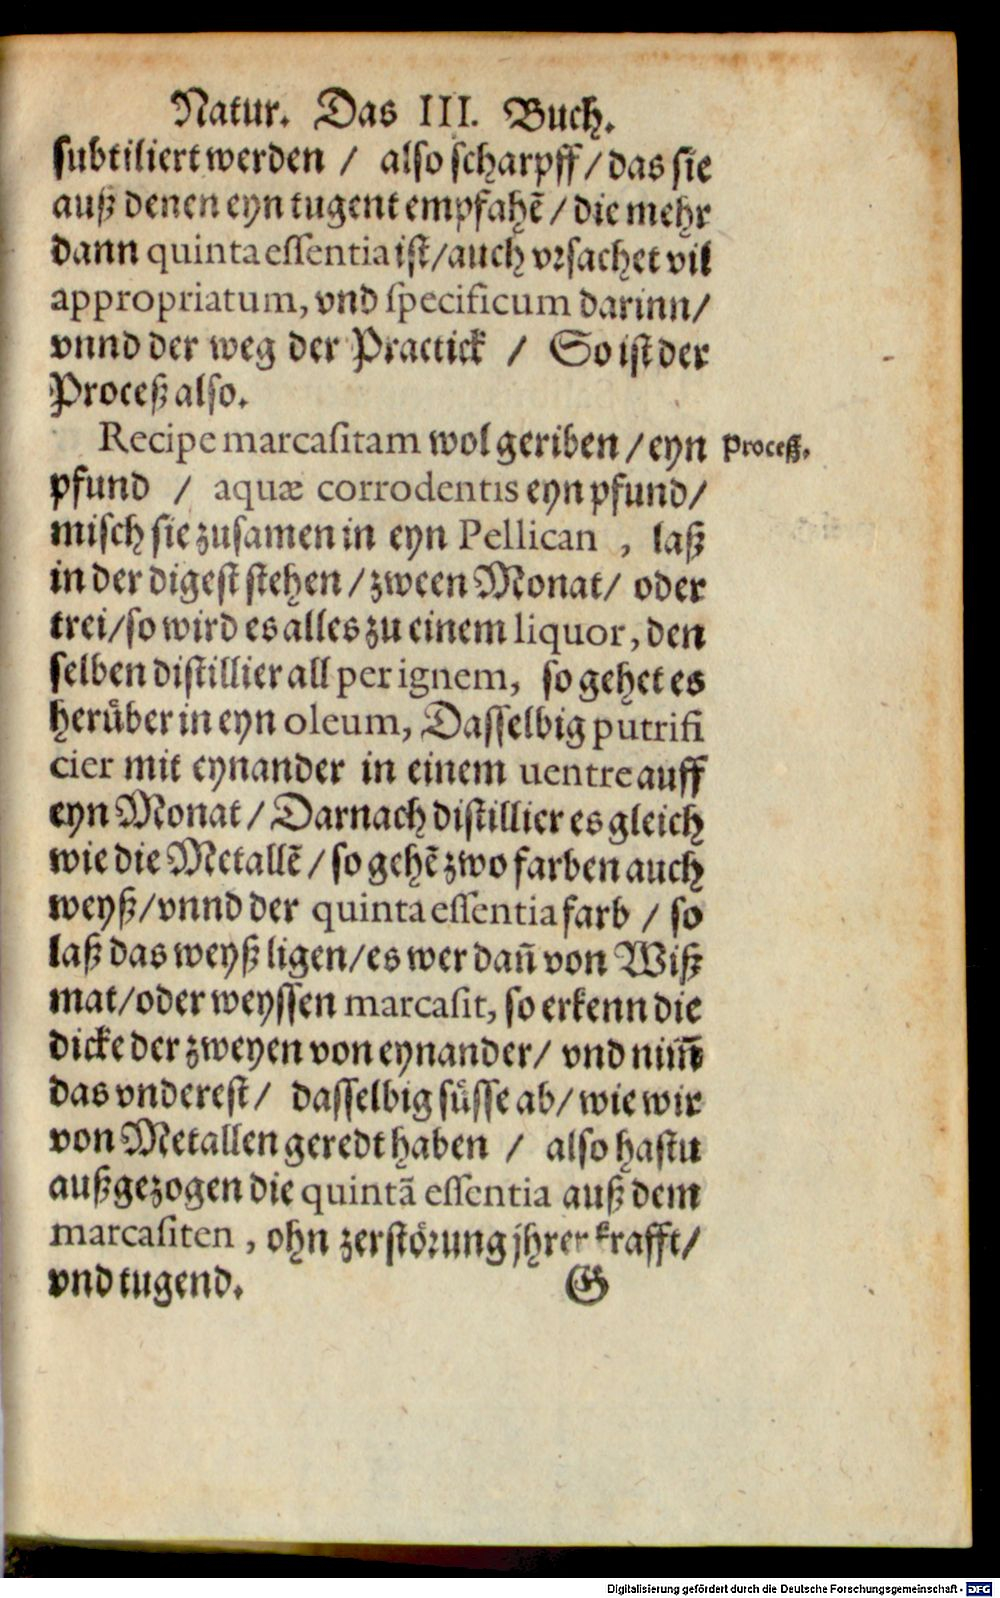 Natur. Das III. Buch.
subtiliert werden / also scharpff / das sie
auß denen eyn tugent empfahẽ / die mehr
dann quinta essentia ist / auch vrsachet vil
appropriatum, vnd specificum darinn /
vnnd der weg der Practick / So ist der
Proceß also.
Recipe marcasitam wol geriben / eyn
Proceß.
pfund / aquæ corrodentis eyn pfund /
misch sie zusamen in eyn Pellican , laß
in der digest stehen / zween Monat / oder
trei / so wird es alles zu einem liquor, den
selben distillier all per ignem, so gehet es
herüber in eyn oleum, Dasselbig putrifi
cier mit eynander in einem uentre auff
eyn Monat / Darnach distillier es gleich
wie die Metallẽ / so gehẽ zwo farben auch
weyß / vnnd der quinta essentia farb / so
laß das weyß ligen / es wer dañ von Wiß
mat / oder weyssen marcasit, so erkenn die
dicke der zweyen von eynander / vnd nim̃
das vnderest / dasselbig süsse ab / wie wir
von Metallen geredt haben / also hastu
außgezogen die quintã essentia auß dem
marcasiten , ohn zerstörung jhrer krafft /
vnd tugend.
G
Digitalisierung gefördert durch die Deutsche Forschungsgemeinschaft - DFG